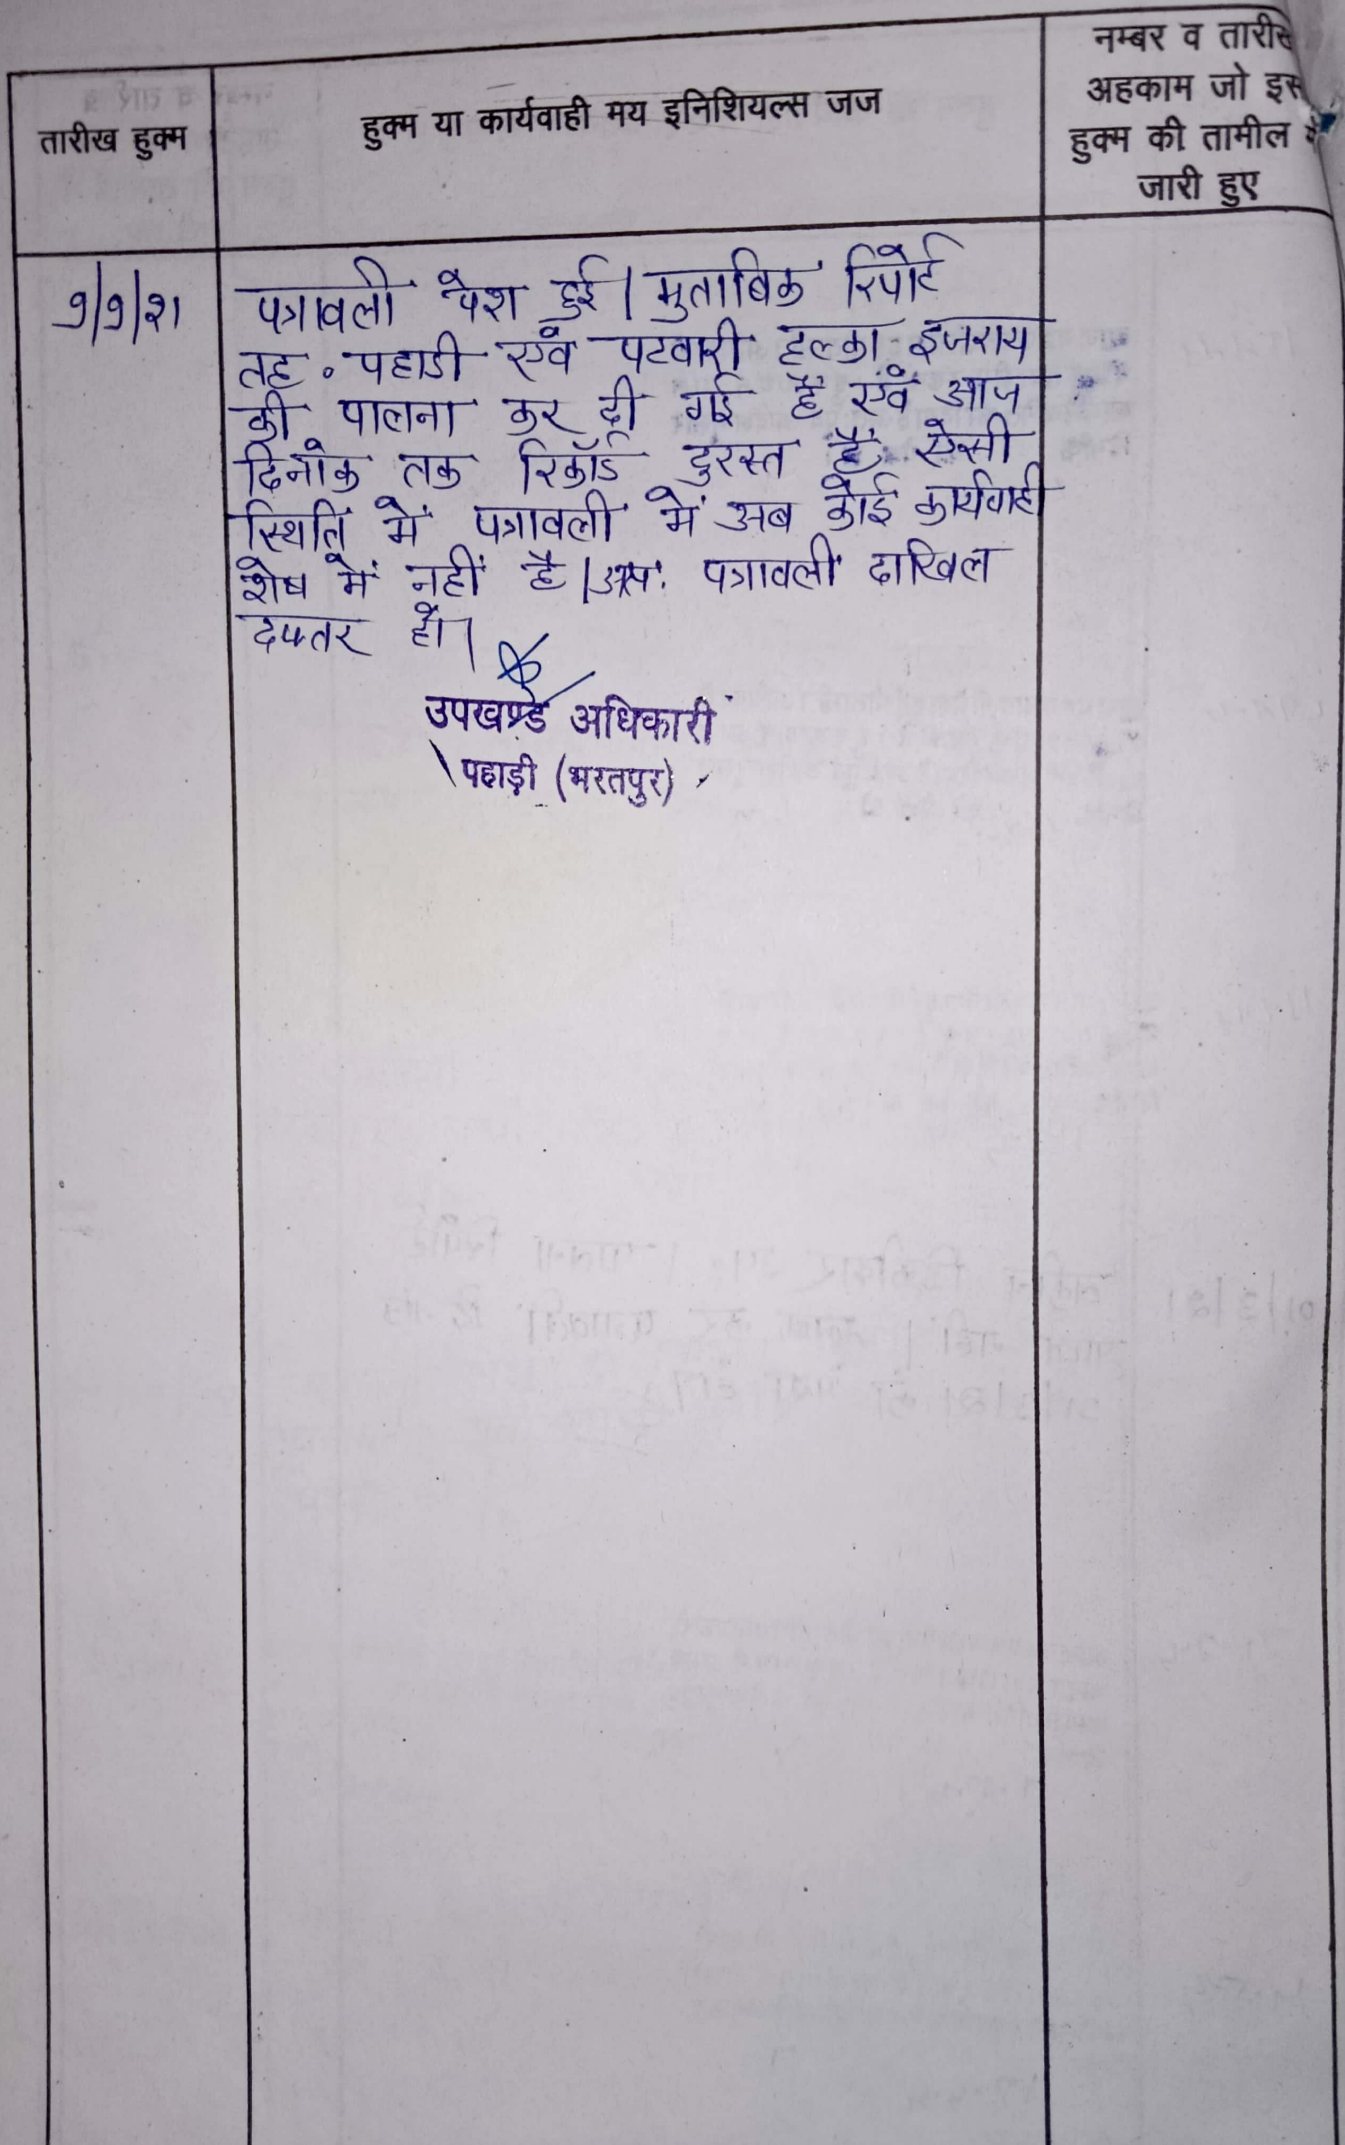 तारीख हुक्म
हुक्म या कार्यवाही मय इनिशियल्स जज
नम्बर व तारीख
अहकाम जो इस
हुक्म की तामील में
जारी हुए
9/9/21
पत्रावली पेश हुई। मुताबिक रिपोर्ट
तह. पहाडी एवं पटवारी हल्का इजराय
की पालना कर दी गई है एवं आज
दिनांक तक रिकॉर्ड दुरस्त है ऐसी
स्थिति में पत्रावली में अब कोई कार्यवाही
शेष में नहीं है। अत: पत्रावली दाखिल
दफ्तर हो।
उपखण्ड अधिकारी
पहाड़ी (भरतपुर)